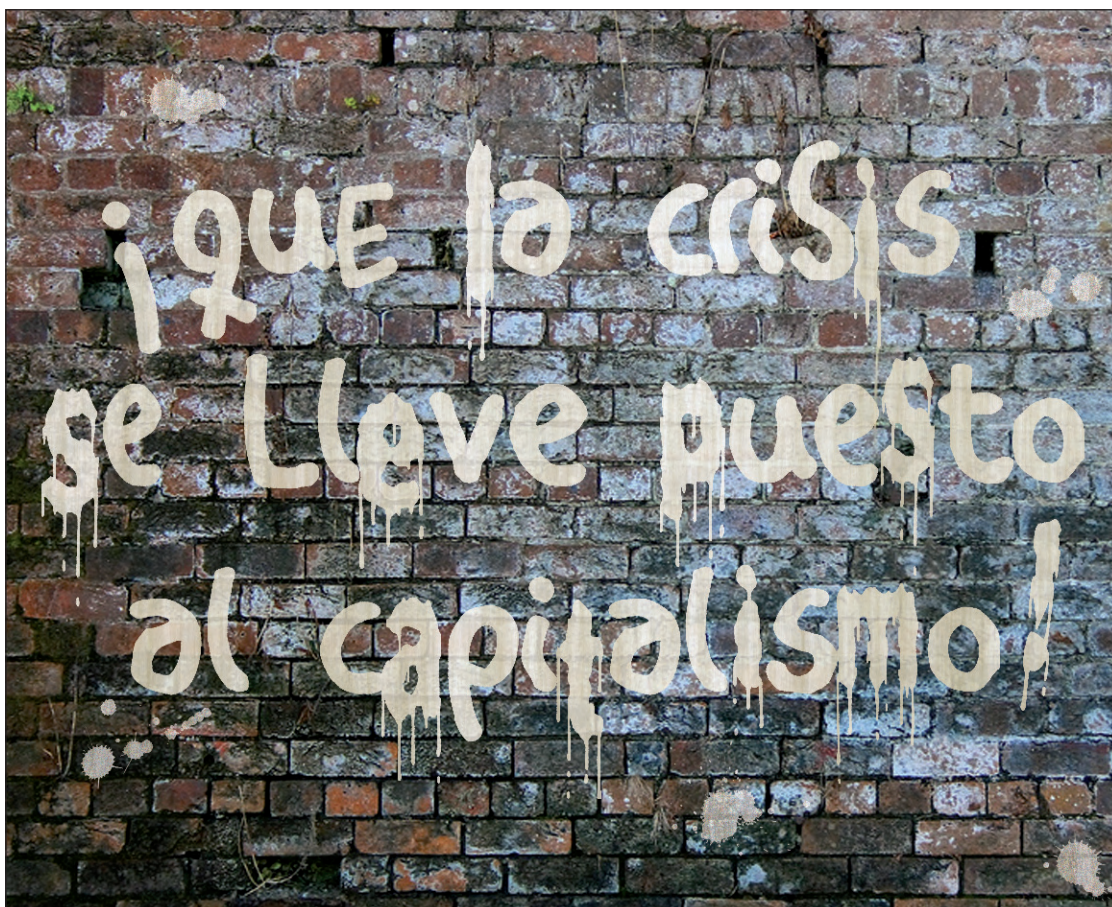 ¡que la crisis
se lleve puesto
al capitalismo!